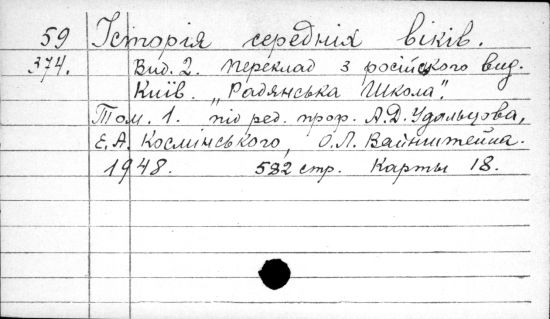 59 Історія середніх віків.
374. Вид. 2. Переклад з російского вид.
Київ. „Радянська Школа".
Том. 1. під ред. проф. А.Д. Удальцова,
Е.А. Космінського, О.Л. Вайнштейна.
1948. 582 стр. Карты 18.